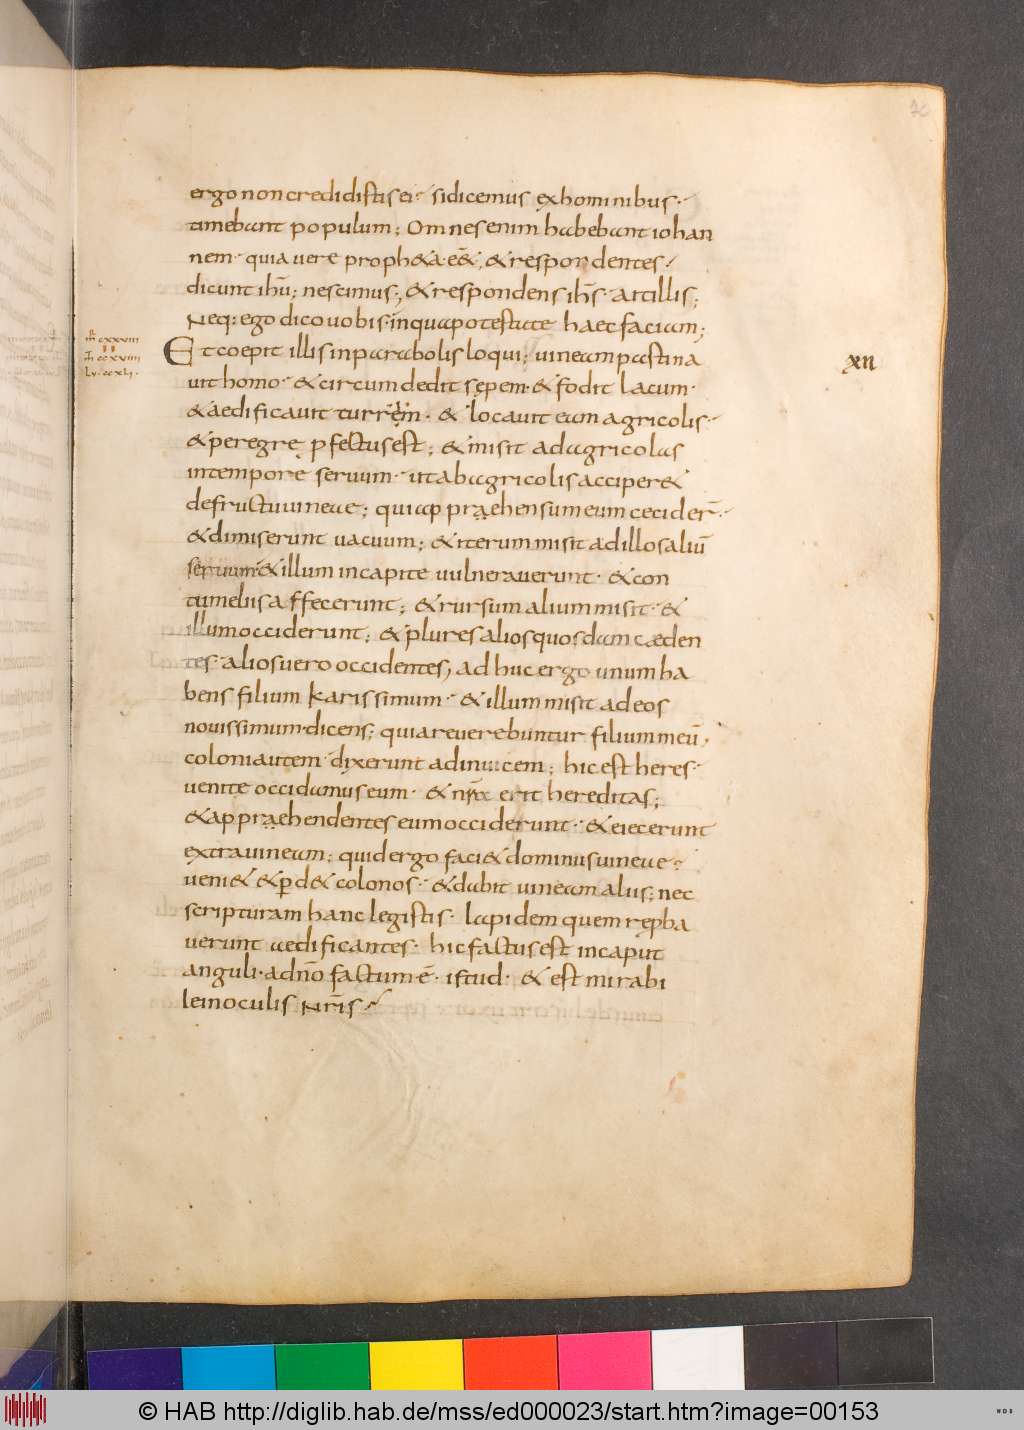 76
ergo non credidistis ei· si dicemus ex hominibus·
timebant populum; Omnes enim habebant iohan
nem· quia uere proph&a· e&̄, & respondentes
dicunt ihū; nescimus; & respondens ihs̄· ait illis;
Neq: ego dico uobis· in qua potestate haec faciam;
Et coepit illis in parabolis loqui; uineam pastina
uit homo· & circumdedit sępem· & fodit lacum·
& aedificauit turrem· & locauit eum agricolis·
& peregre pfectus est; & misit ad agricolas
in tempore seruum· ut ab agricolis acciper&
de fructu uineae; qui app̄ræhensum eum cecider̄·
& dimiserunt uacuum; & iterum misit ad illos aliū
seruum· & illum in capite uulnerauerunt· & con
tumeliis affecerunt; & rursum alium misit· &
illum occiderunt; & plures alios quosdam cæden
tes· alios uero occidentes, ad huc ergo unum ha
bens filium karissimum· & illum misit ad eos
nouissimum· dicens; quia reuerebuntur filium meū,
coloni autem dixerunt ad inuicem; hic est heres·
uenite occidamus eum· & nr̄a erit hereditas;
& appræhendentes eum occiderunt· & eiecerunt
extra uineam; quid ergo faci& dominus uineae·
ueni& & pd& colonos· & dabit uineam aliis; nec
scripturam hanc legistis· lapidem quem repba
uerunt aedificantes· hic factus est in caput
anguli· a dn̄o factum ē· istud· & est mirabi
le in oculis Nr̄is
xii
m̄r cxxviii
m̄ ccxviiii
Lu· ccxli·
© HAB http://diglib.hab.de/mss/ed000023/start.htm?image=00153
WDB